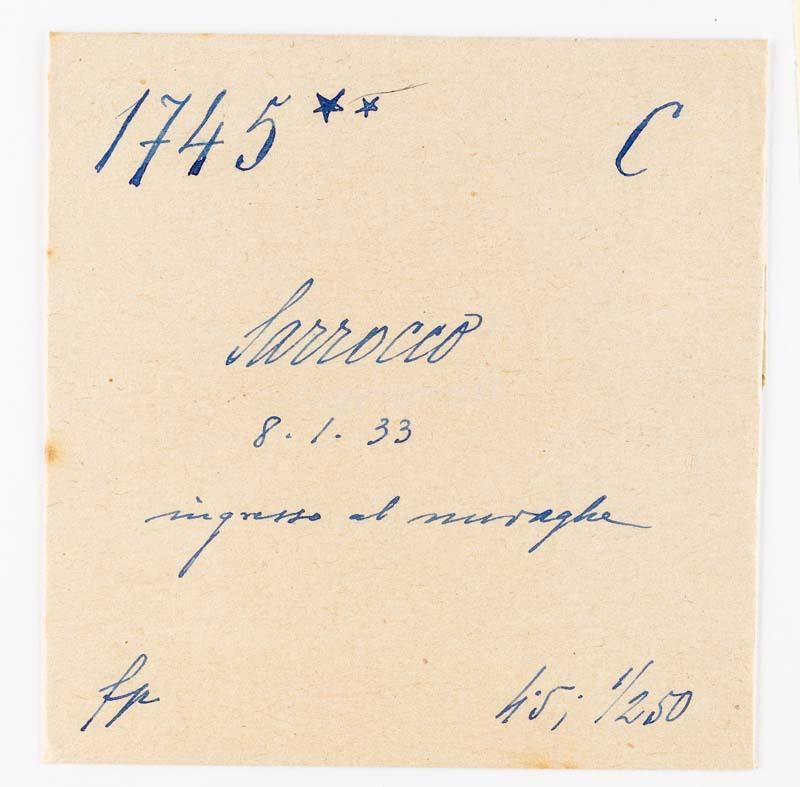 1745** C
Sarrocco
8.1.33
ingresso al nuraghe
fp 4.5; 1/250